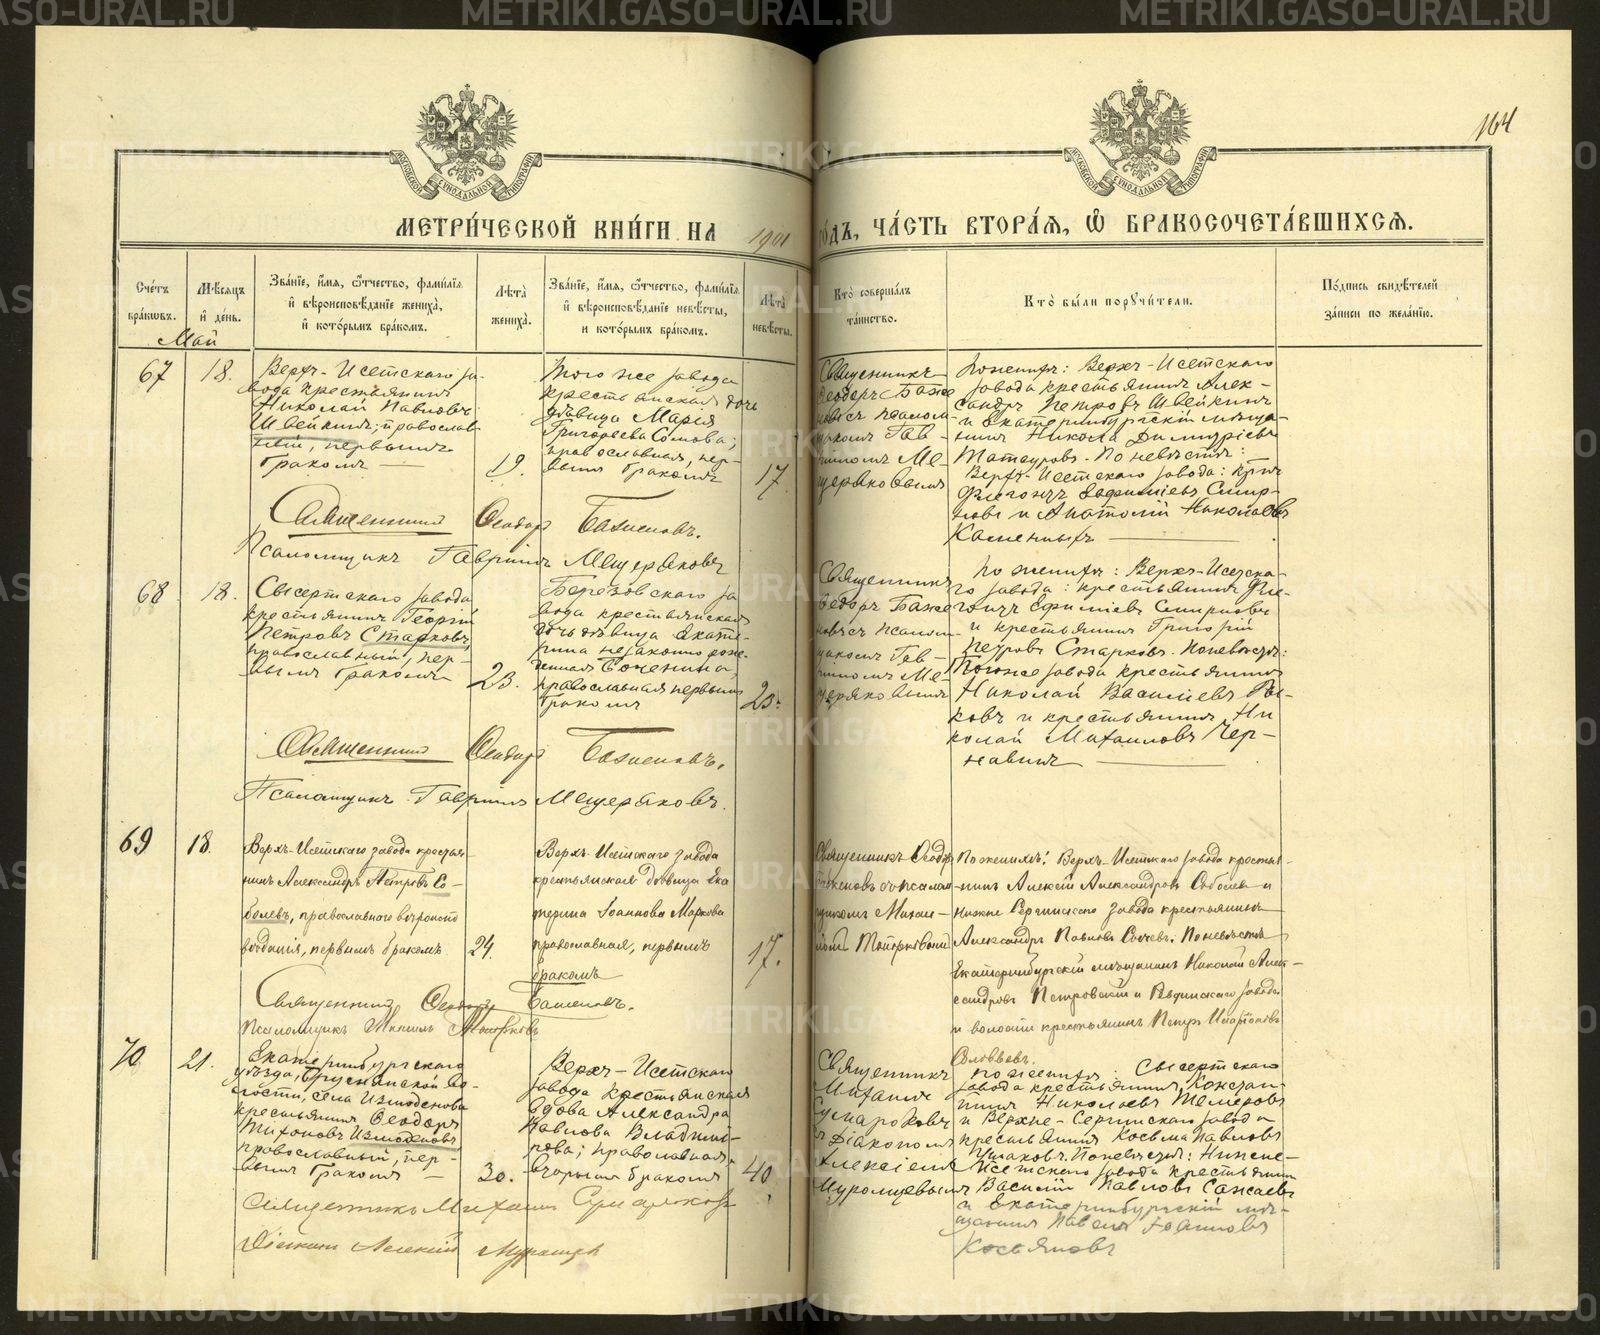 METRIKI.GASO-URAL.RU
164
МОСКОВСКОЙ СУНОДАЛЬНОЙ ТИПОГРАФІИ
МОСКОВСКОЙ СУНОДАЛЬНОЙ ТИПОГРАФІИ
МЕТРИ́ЧЕСКОЙ КНИ́ГИ НА 1901 го́дъ, ЧА́СТЬ ВТОРА́Я, Ѽ БРАКОСОЧЕТА́ВШИХСЯ.
Сче́тъ бра́кѡвъ.
Мѣ́сяцъ и҆ де́нь.
Зва́нїе, и҆́мя, ѻ҆́тчество, фами́лїя и҆ вѣроисповѣ́данїе жениха̀, и҆ кото́рымъ бра́комъ.
Лѣ́та жениха̀.
Зва́нїе, и҆́мя, ѻ҆́тчество, фами́лїя и҆ вѣроисповѣ́данїе невѣ́сты, и҆ кото́рымъ бра́комъ.
Лѣ́та невѣ́сты.
Кто̀ соверша́лъ та́инство.
Кто̀ бы́ли порꙋчи́тели.
По́дпись свидѣ́телей за́писи по жела́нїю.
Май
67
18.
Верхъ-Исетскаго за-
вода крестьянинъ
Николай Павловъ
Швейкинъ; православ-
ный, первымъ
бракомъ
19.
того же завода
крестьянская дочь
дѣвица Марія
Григорьева Сомова;
православная, пер-
вымъ бракомъ
17.
Священникъ
Ѳеодоръ Баже-
новъ съ псалом-
щикомъ Гав-
ріиломъ Ме-
щеряковымъ
По женихѣ: Верхъ-Исетскаго
завода крестьянинъ Алек-
сандръ Петровъ Швейкинъ
и Екатеринбургскій мѣща-
нинъ Никола Димитріевъ
По невѣстѣ:
Верхъ-Исетскаго завода: кр-не
Флегонтъ Евфиміевъ Смир-
новъ и Анатолій Николаевъ
Каменныхъ
Священникъ Ѳеодоръ Баженовъ.
Псаломщикъ Гавріилъ Мещеряковъ
68.
18.
Сысертскаго завода
крестьянинъ Георгій
Петровъ Старковъ,
православный, пер-
вымъ бракомъ
23.
Березовскаго за-
вода крестьянская
дочь дѣвица Екате-
рина незаконнорож-
денная
православная первымъ
бракомъ
23.
Священникъ
Ѳеодоръ Баже-
новъ съ псалом-
щикомъ Гав-
ріиломъ Ме-
щеряковымъ
По женихѣ: Верхъ-Исетска-
го завода: крестьянинъ Фле-
гонтъ Ефиміевъ Смирновъ
и крестьянинъ Григорій
Петровъ Старковъ. По невѣстѣ:
Того же завода крестьянинъ
Николай Васильевъ Ры-
ковъ и крестьянинъ Ни-
колай Михайловъ Чер-
навинъ
Священникъ Ѳеодоръ Баженовъ.
Псаломщикъ Гавріилъ Мещеряковъ.
69
18.
Верхъ-Исетскаго завода крестья-
нинъ Александръ Петровъ Со-
болевъ, православнаго вѣроиспо-
вѣданія, первымъ бракомъ
24.
Верхъ-Исетскаго завода
крестьянская дѣвица Ека-
терина Іоаннова Маркова
православная, первымъ
бракомъ
17.
Священникъ Ѳеодоръ
Баженовъ съ псалом-
щикомъ Михаи-
ломъ
По женихѣ: Верхъ-Исетскаго завода крестья-
нинъ Алексій Александровъ Соболевъ и
Нижне Сергинскаго завода крестьянинъ
Александръ Павловъ По невѣстѣ
Екатеринбургскій мѣщанинъ Николай Алек-
сандровъ Петровскій и Ревдинскаго завода
и волости крестьянинъ Петръ
Соловьевъ.
Священникъ Ѳеодоръ Баженовъ.
Псаломщикъ Михаилъ
70
21.
Екатеринбургскаго
уѣзда, Бруснянской во-
лости, села Измоденова
крестьянинъ Ѳеодоръ
Тихоновъ Измоденовъ
православный, пер-
вымъ бракомъ
30.
Верхъ-Исетскаго
завода крестьянская
вдова Александра
Павлова Владими-
рова; православная,
вторымъ бракомъ
40
Священникъ
Михаилъ
Сумароковъ
съ Діакономъ
Алексіемъ
Муромцевымъ
По женихѣ: Сысертскаго
завода крестьянинъ Констан-
тинъ Николаевъ Темеровъ
и Верхне-Сергинскаго завода
крестьянинъ Косьма Павловъ
По невѣстѣ: Нижне-
Исетскаго завода крестьянинъ
Василій Павловъ
и Екатеринбургскій мѣ-
щанинъ Павелъ Іоанновъ
Косьяновъ
Священникъ Михаилъ Сумароковъ
Діаконъ Алексій Муромцевъ